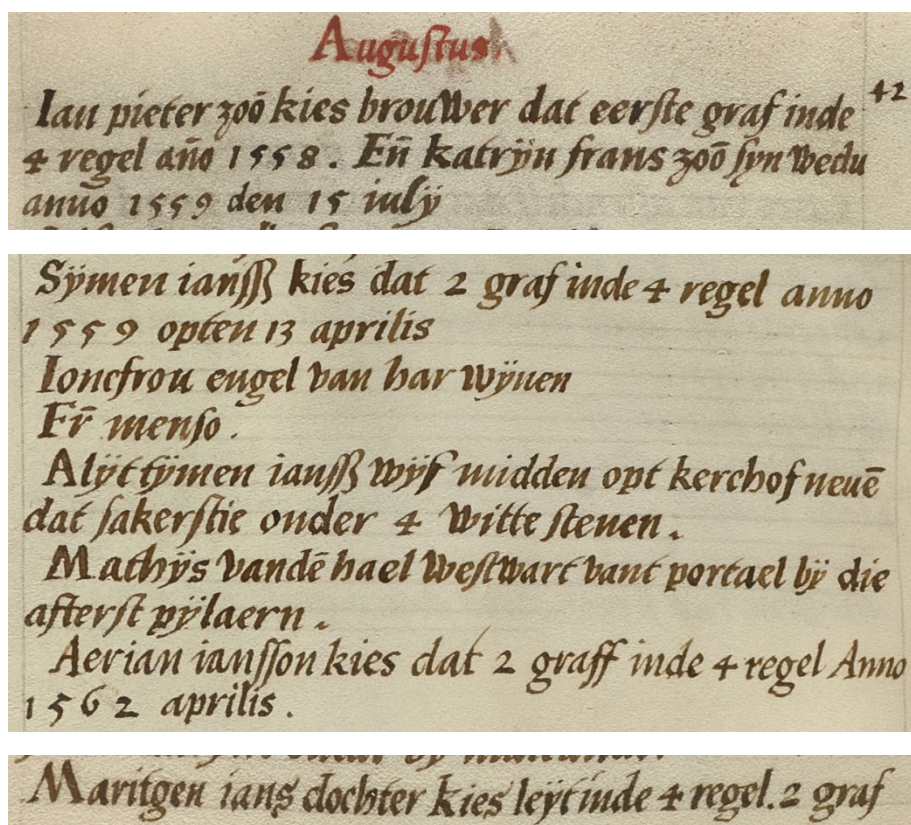 Augustus
42
Ian pieter zoō kies brouwer dat eerste graf inde
4 regel año 1558. Eñ katrÿn frans zoō syn wedu
anno 1559 den 15 iulÿ
Sÿmen ianß kies dat 2 graf inde 4 regel anno
1559 opten 13 aprilis
Ioncfrou engel van har wÿnen
Fr̄ menso.
Alÿt tÿmen ianß wÿf midden opt kerchof neuē
dat sakerstie onder 4 witte stenen.
Mathÿs vandē hael westwart vant portael bÿ die
afterst pÿlaern.
Aerian iansson kies dat 2 graff inde 4 regel Anno
1562 aprilis.
Maritgen ians dochter kies leÿt inde 4 regel. 2 graf